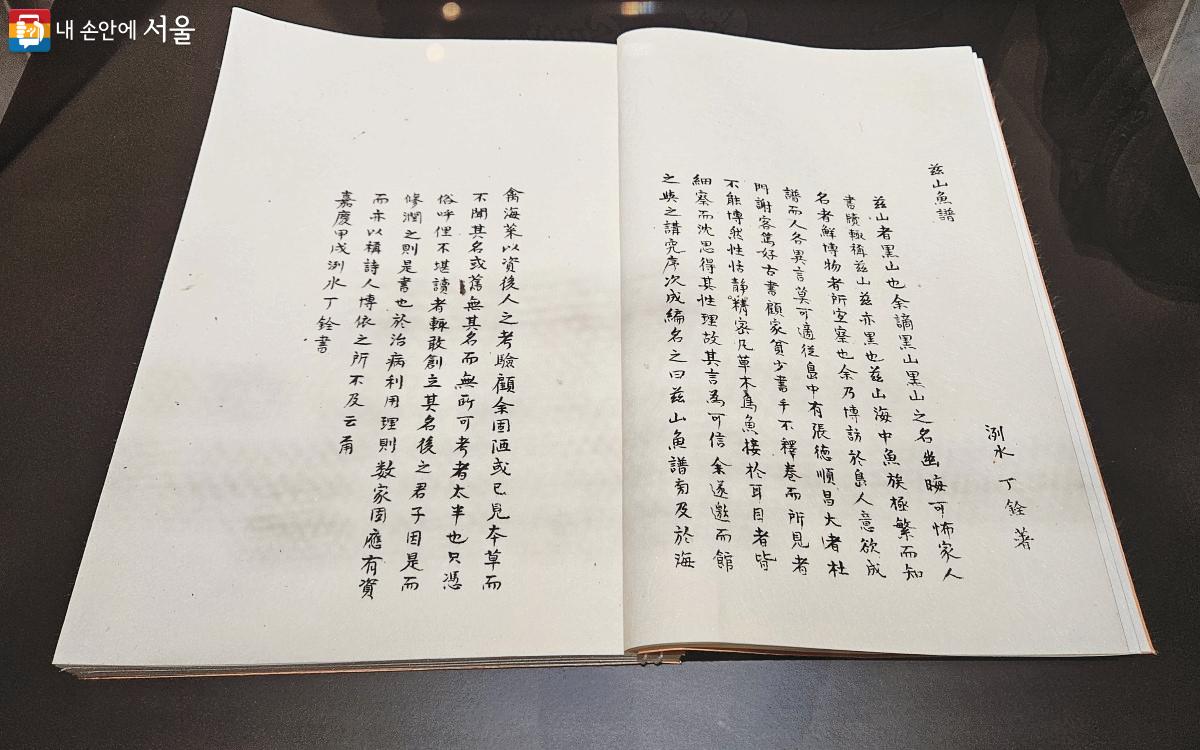 내 손안에 서울
兹山魚譜 洌水 丁銓 著
兹山者黑山也余謫黑山黑山之名幽晦可怖家人
書牘輒稱兹山兹亦黑也兹山海中魚族極繁而知
名者鮮博物者所宜察也余乃博訪於島人意欲成
譜而人各異言莫可適從島中有張德順昌大者杜
門謝客篤好古書顧家貧少書手不釋卷而所見者
不能博然性恬靜精密凡草木鳥魚接於耳目者皆
細察而沈思得其性理故其言爲可信余遂邀而館
之與之講究序次成編名之曰兹山魚譜旁及於海
禽海菜以資後人之考驗顧余固陋或已見本草而
不聞其名或舊無其名而無所可考者太半也只憑
俗呼俚不堪讀者輒敢創立其名後之君子因是而
修潤之則是書也於治病利用理則数家固應有資
而亦以補詩人博依之所不及云爾
嘉慶甲戌洌水丁銓書